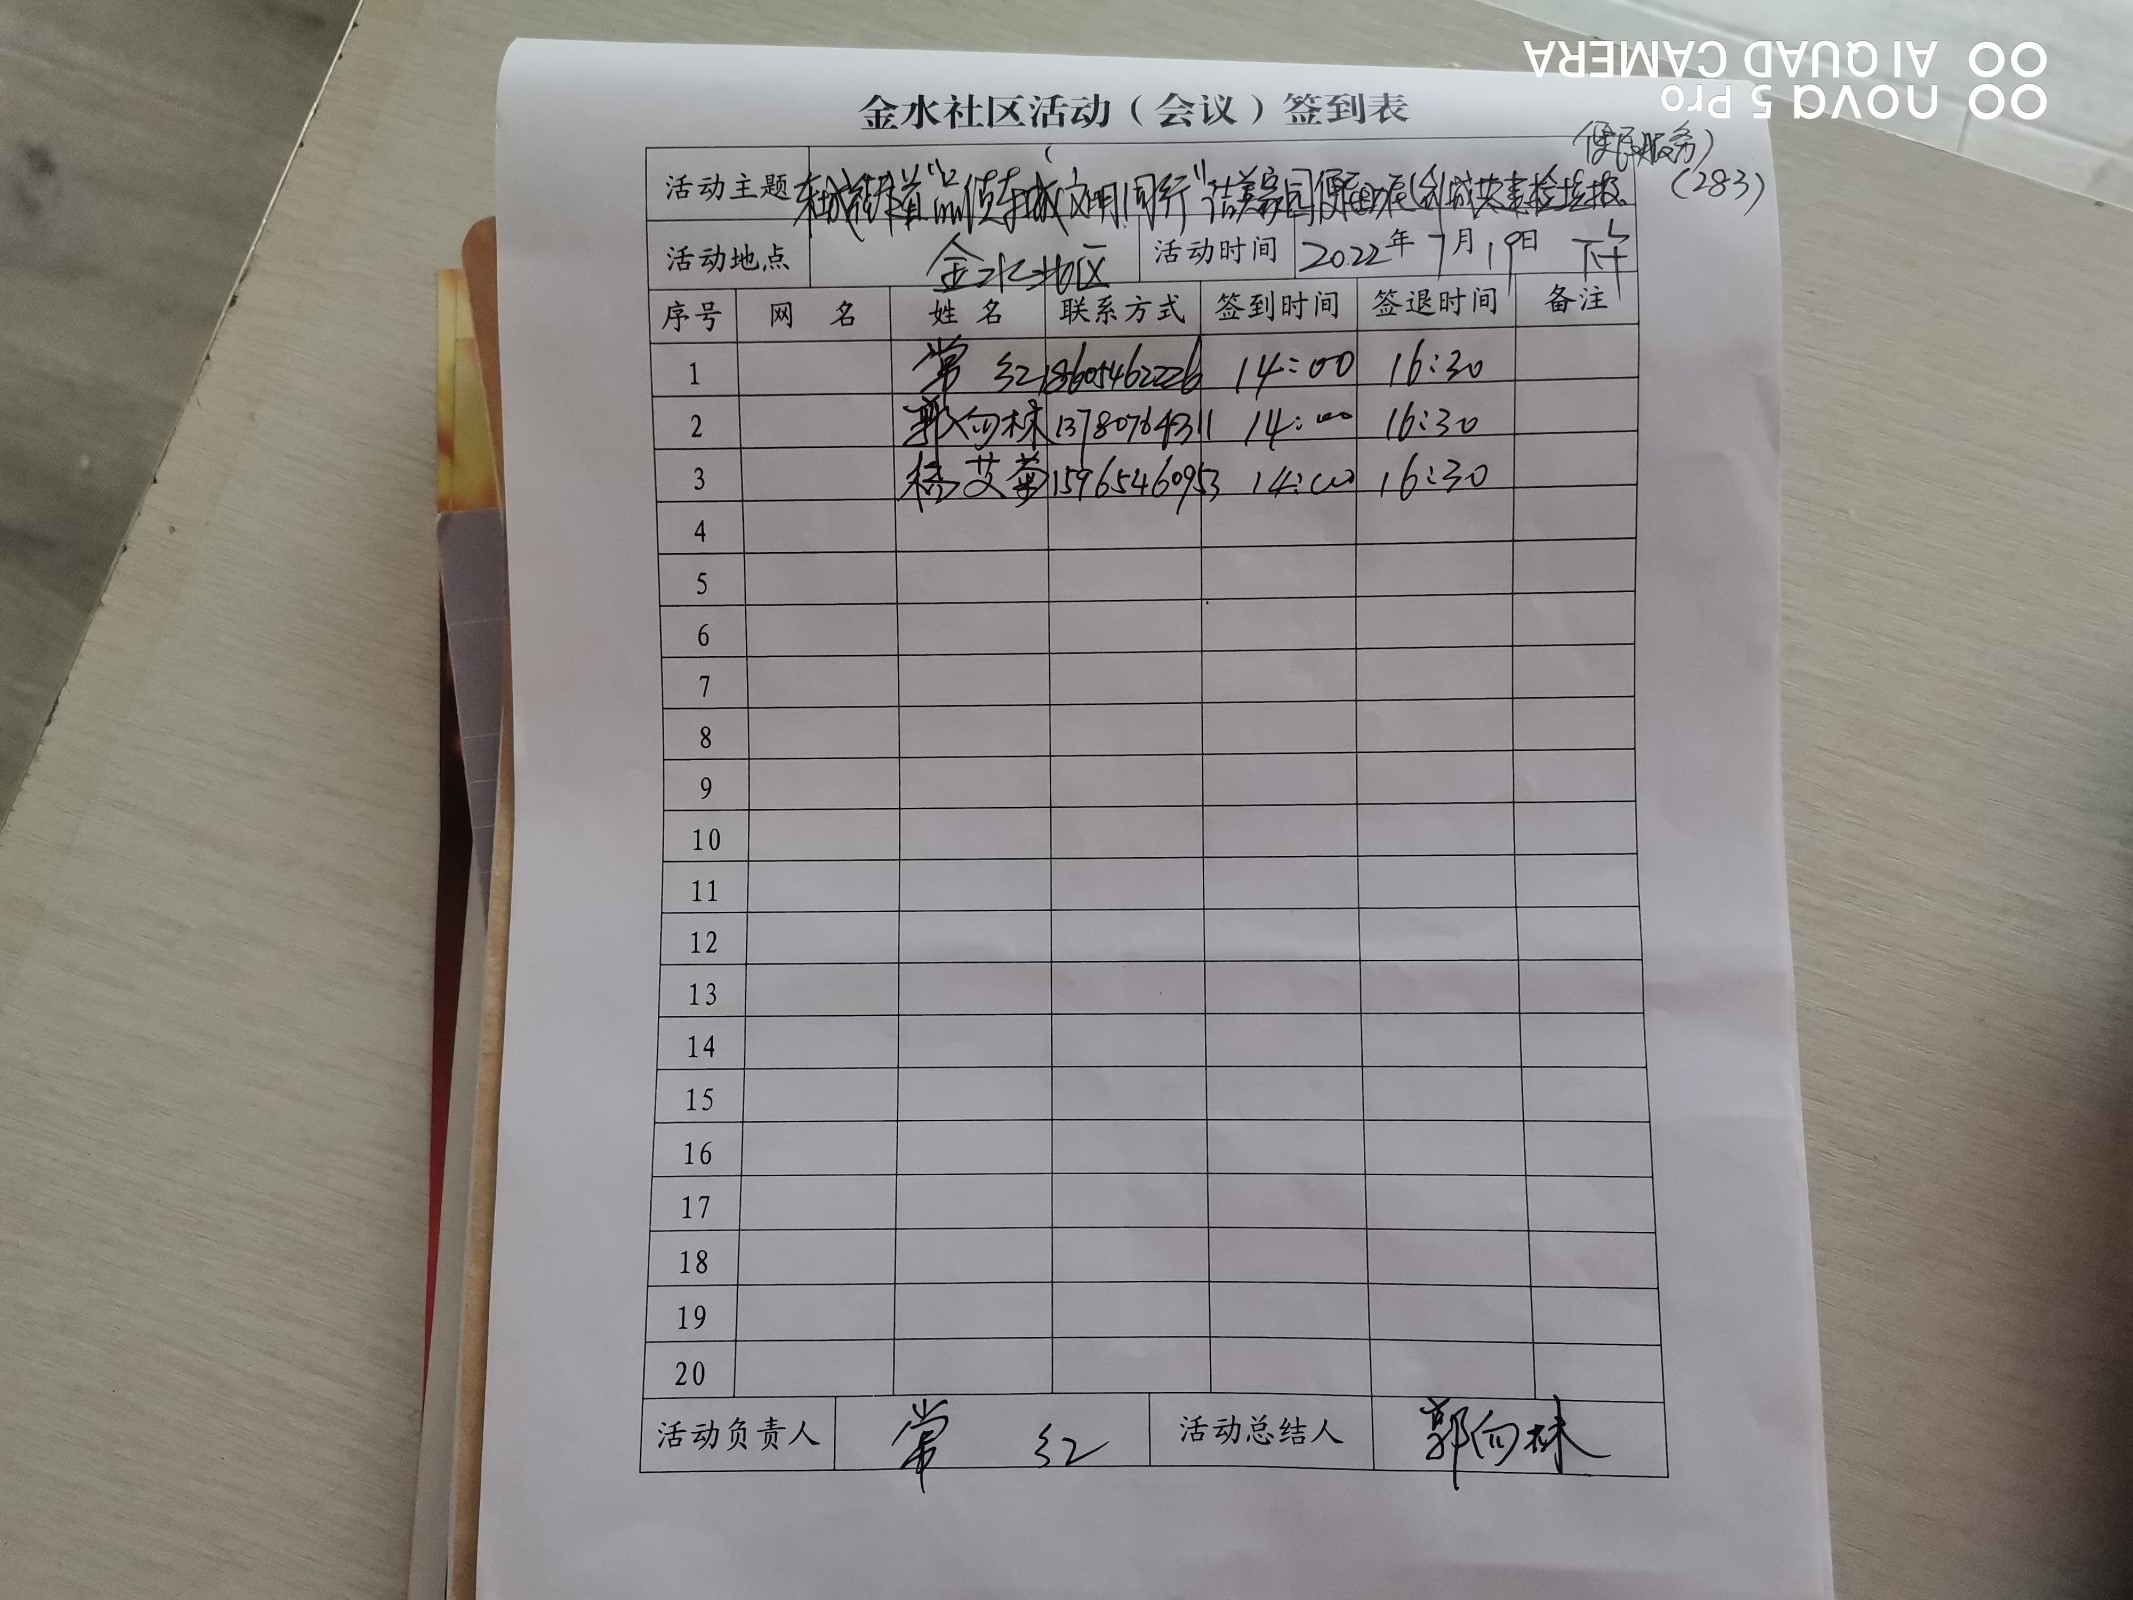 金水社区活动（会议）签到表
便民服务）
(283)
活动主题 东城街道"品质东城 文明同行"洁美家园便民助民（
活动地点 金水社区 活动时间 2022年7月19日 下午
序号 网 名 姓 名 联系方式 签到时间 签退时间 备注
1 常 红 18605462226 14:00 16:30
2 郭向林 13780764311 14:00 16:30
3 杨艾菊 15965460953 14:00 16:30
4
5
6
7
8
9
10
11
12
13
14
15
16
17
18
19
20
活动负责人 常 红 活动总结人 郭向林
nova 5 Pro
AI QUAD CAMERA